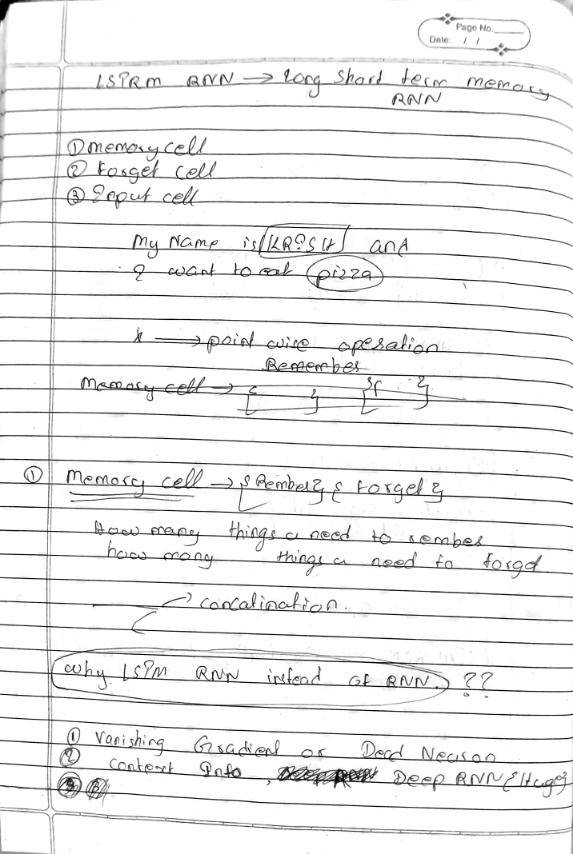 Page No.
Date: / /
LSTRM RNN → Long Short term memory
RNN
① memory cell
② Forget cell
③ Input cell
My Name is KRISH and
I want to eat pizza
* → point wise operation
Remember
Memory cell → { } { }
① Memory cell → { Rember } { Forget }
How many things u need to rember
how many things u need to forgd
→ concatination.
Why LSTM RNN instead of RNN. ??
① Vanishing Gradient or Dead Neuron
② context Info, Deep RNN {Huge}
③